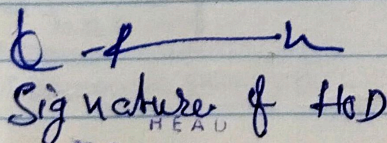 Signature of HOD
HEAD